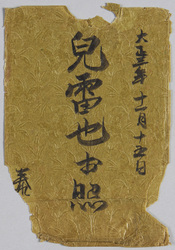 大正三年十一月十五日
兒雷也お照
義